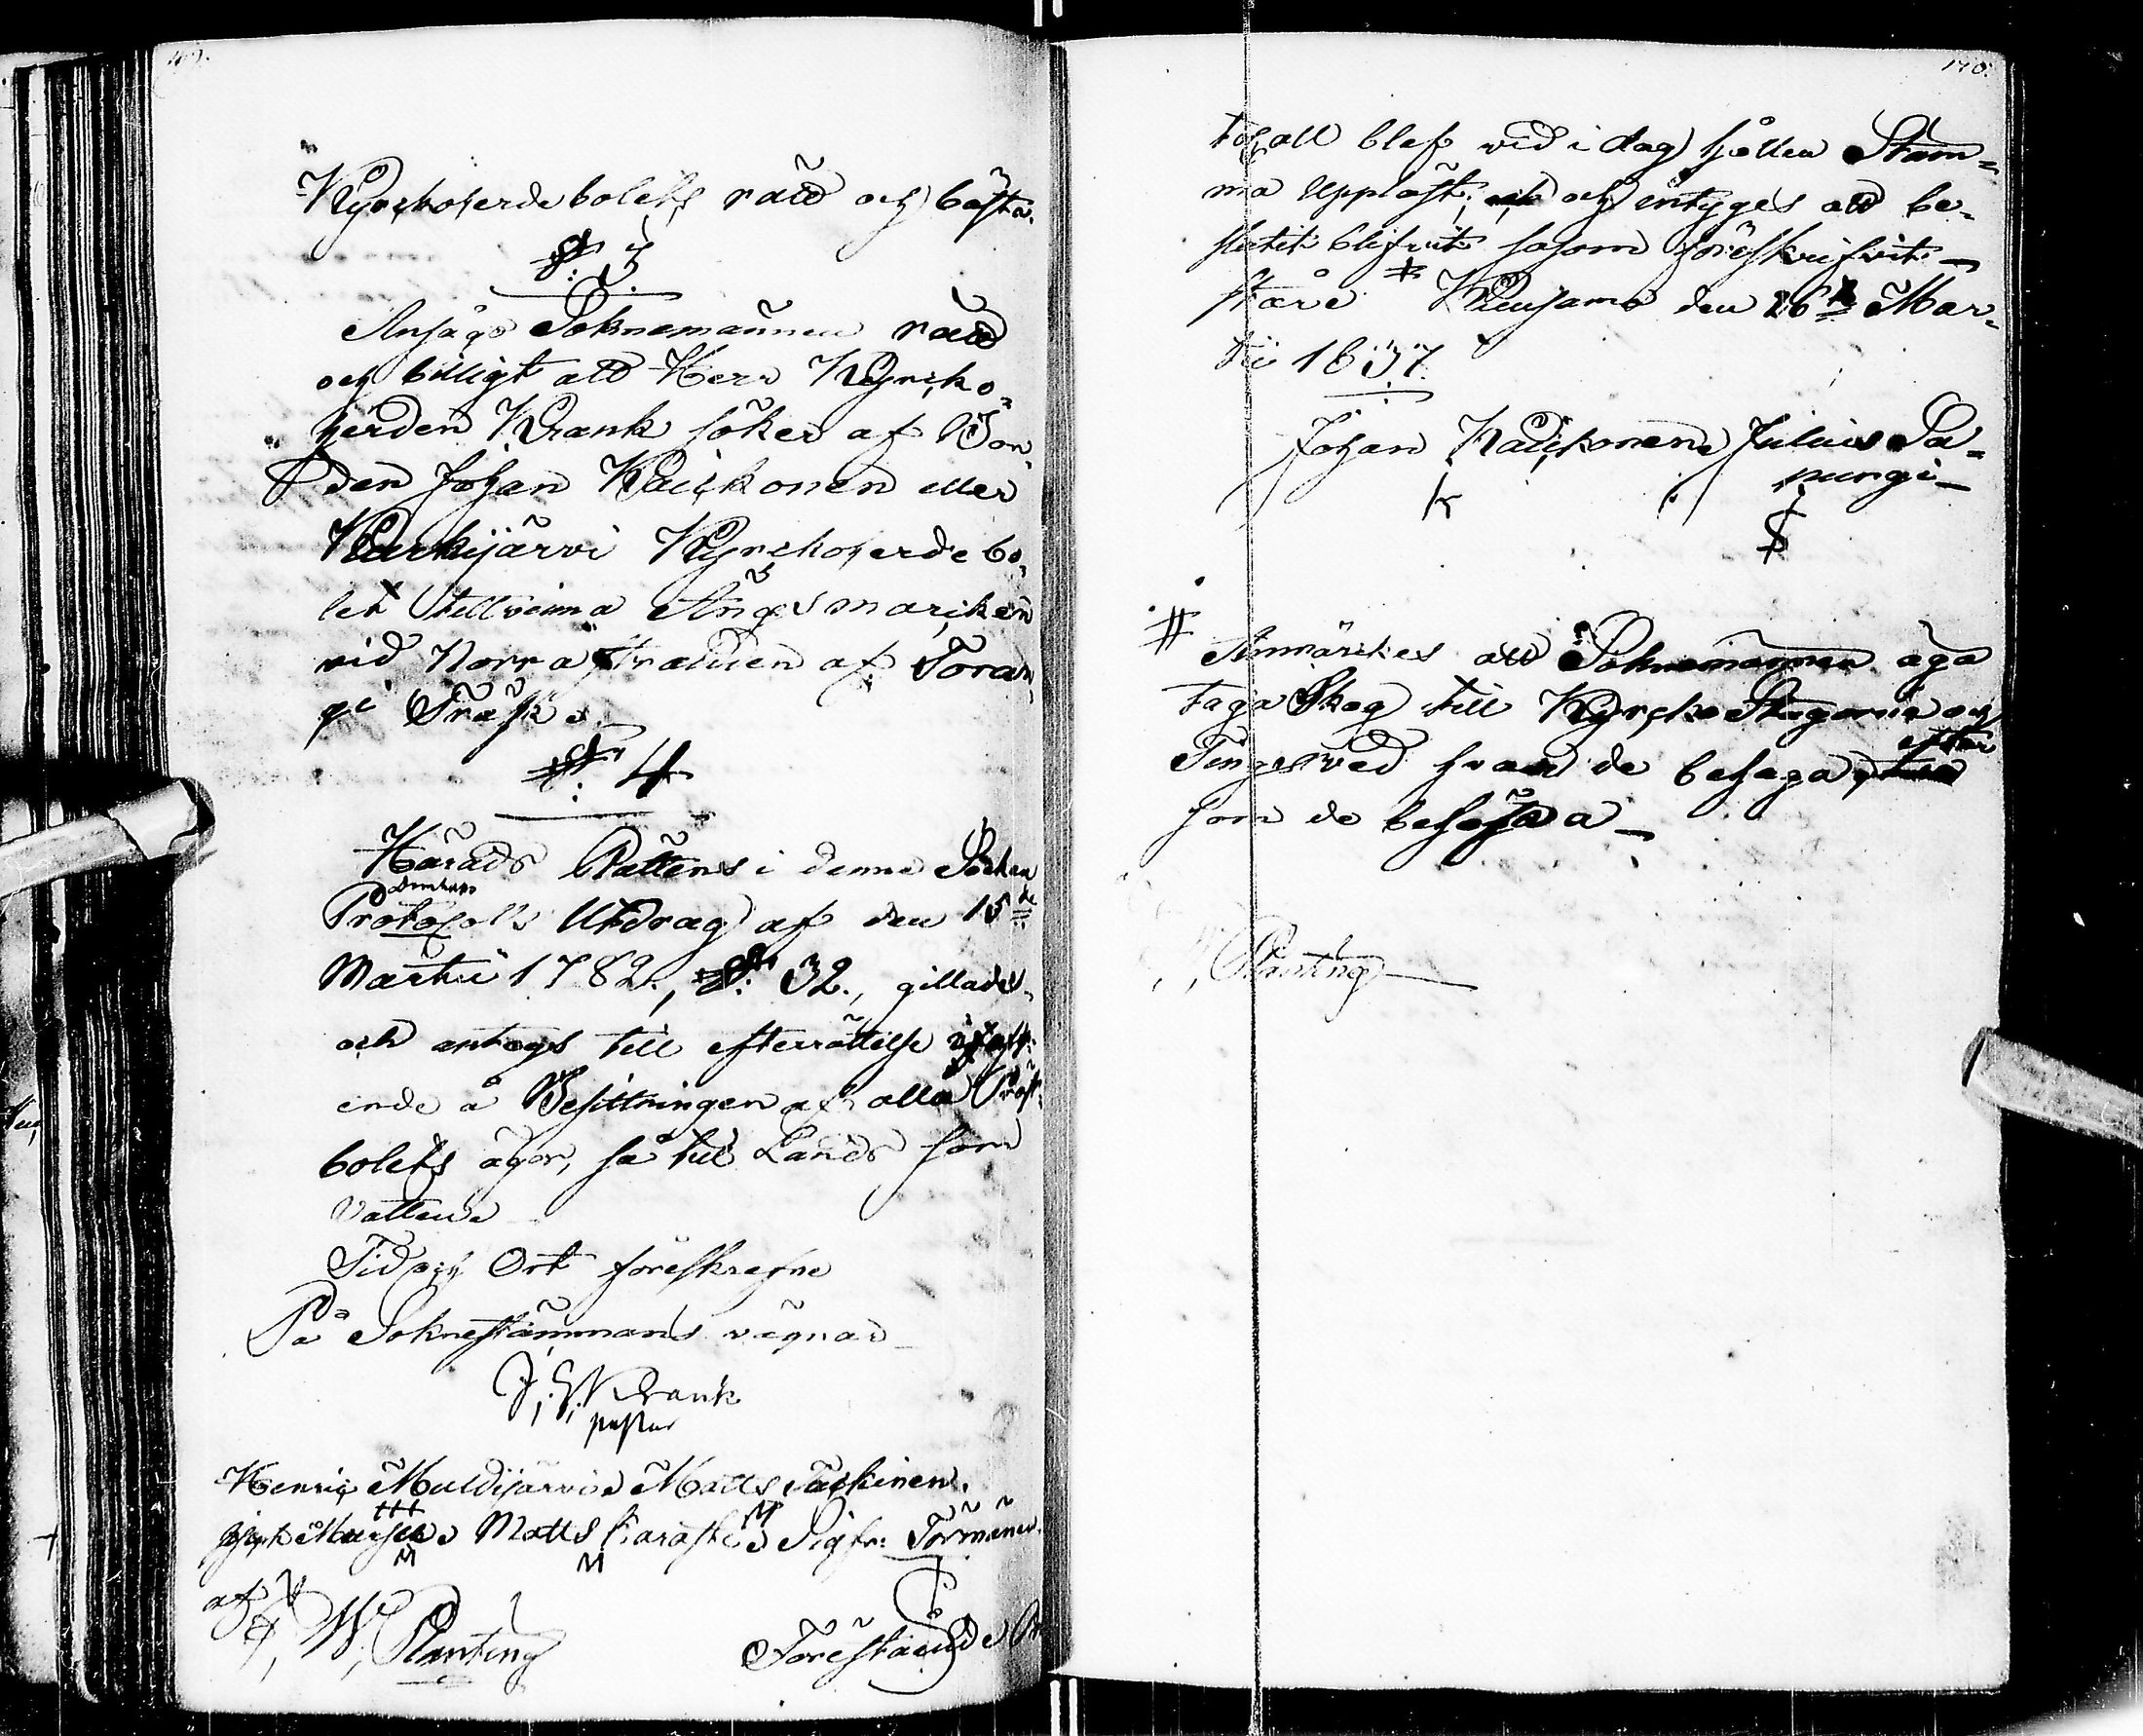 Kyrckoherdebolets rätt och bästa.
§ 3
Ansågo Soknemännen rätt
och billigt att Herr Kyrcko-
herden Krank söker af Bon-
den Johan Kauckonen eller
Karhijärvi Kyrckoherdebo-
let tillvinna Ängesmarcken
vid Norra stranden af Toran-
gi Träsk.
§ 4
Härads Rättens i denne Sockn
Protocolls Utdrag af den 15de
Martii 1782., §: 32., gillades
och antogs till efterrättelse
ende å Besittningen af alla Präst-
bolets ägor, så till Lands som
Vattens
Tid och Ort föreskrefne
På Soknestämmans vägnar
J. W. Krank
pastor
Henric Multijärvi Matts Tackinen.
Matts Karasti Sigfr: Törmänen.
af
J, W, Planting
Föreståinde
tocoll blef vid i dag hållen Stäm-
ma Uppläst, och intyges att be-
slutit blifvit såsom föreskrifvit
står # Kuusamo den 26 Mar-
tii 1837.
Johan Kauckonen Julius Sa-
pungi
#
Anmärckes att Soknemännen äga
taga Skog till Kyrcko Stugorne och
Tingsved hvar de behaga, efter
som de behöfva
Planting